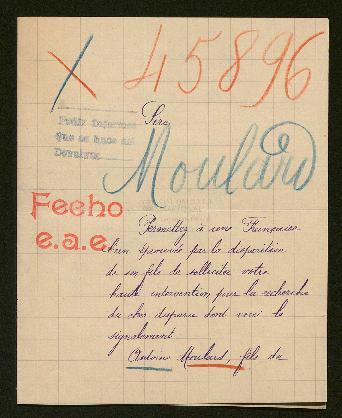 X 45896
Sire
Pedir Informes
que se hace en
Moulard
Fecho
e.a.e.
Permettez à une Française
bien éprouvée par la disparition
de son fils de solliciter votre
haute intervention pour la recherche
du cher disparu dont voici le
signalement
Antoine Moulard, fils de